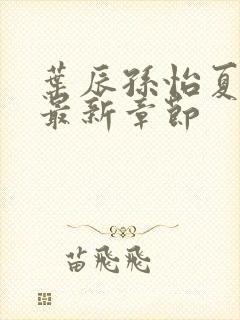 葉辰孫怡夏
最新章節
苗飛飛